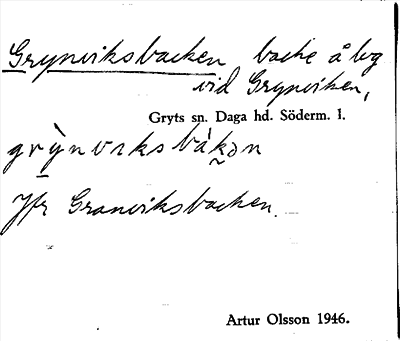 Grynviksbacken backe å lvg
vid Grynviken,
Gryts sn. Daga hd. Söderm. l.
grỳnvɩksbák̬ən
Jfr Granviksbacken.
Artur Olsson 1946.